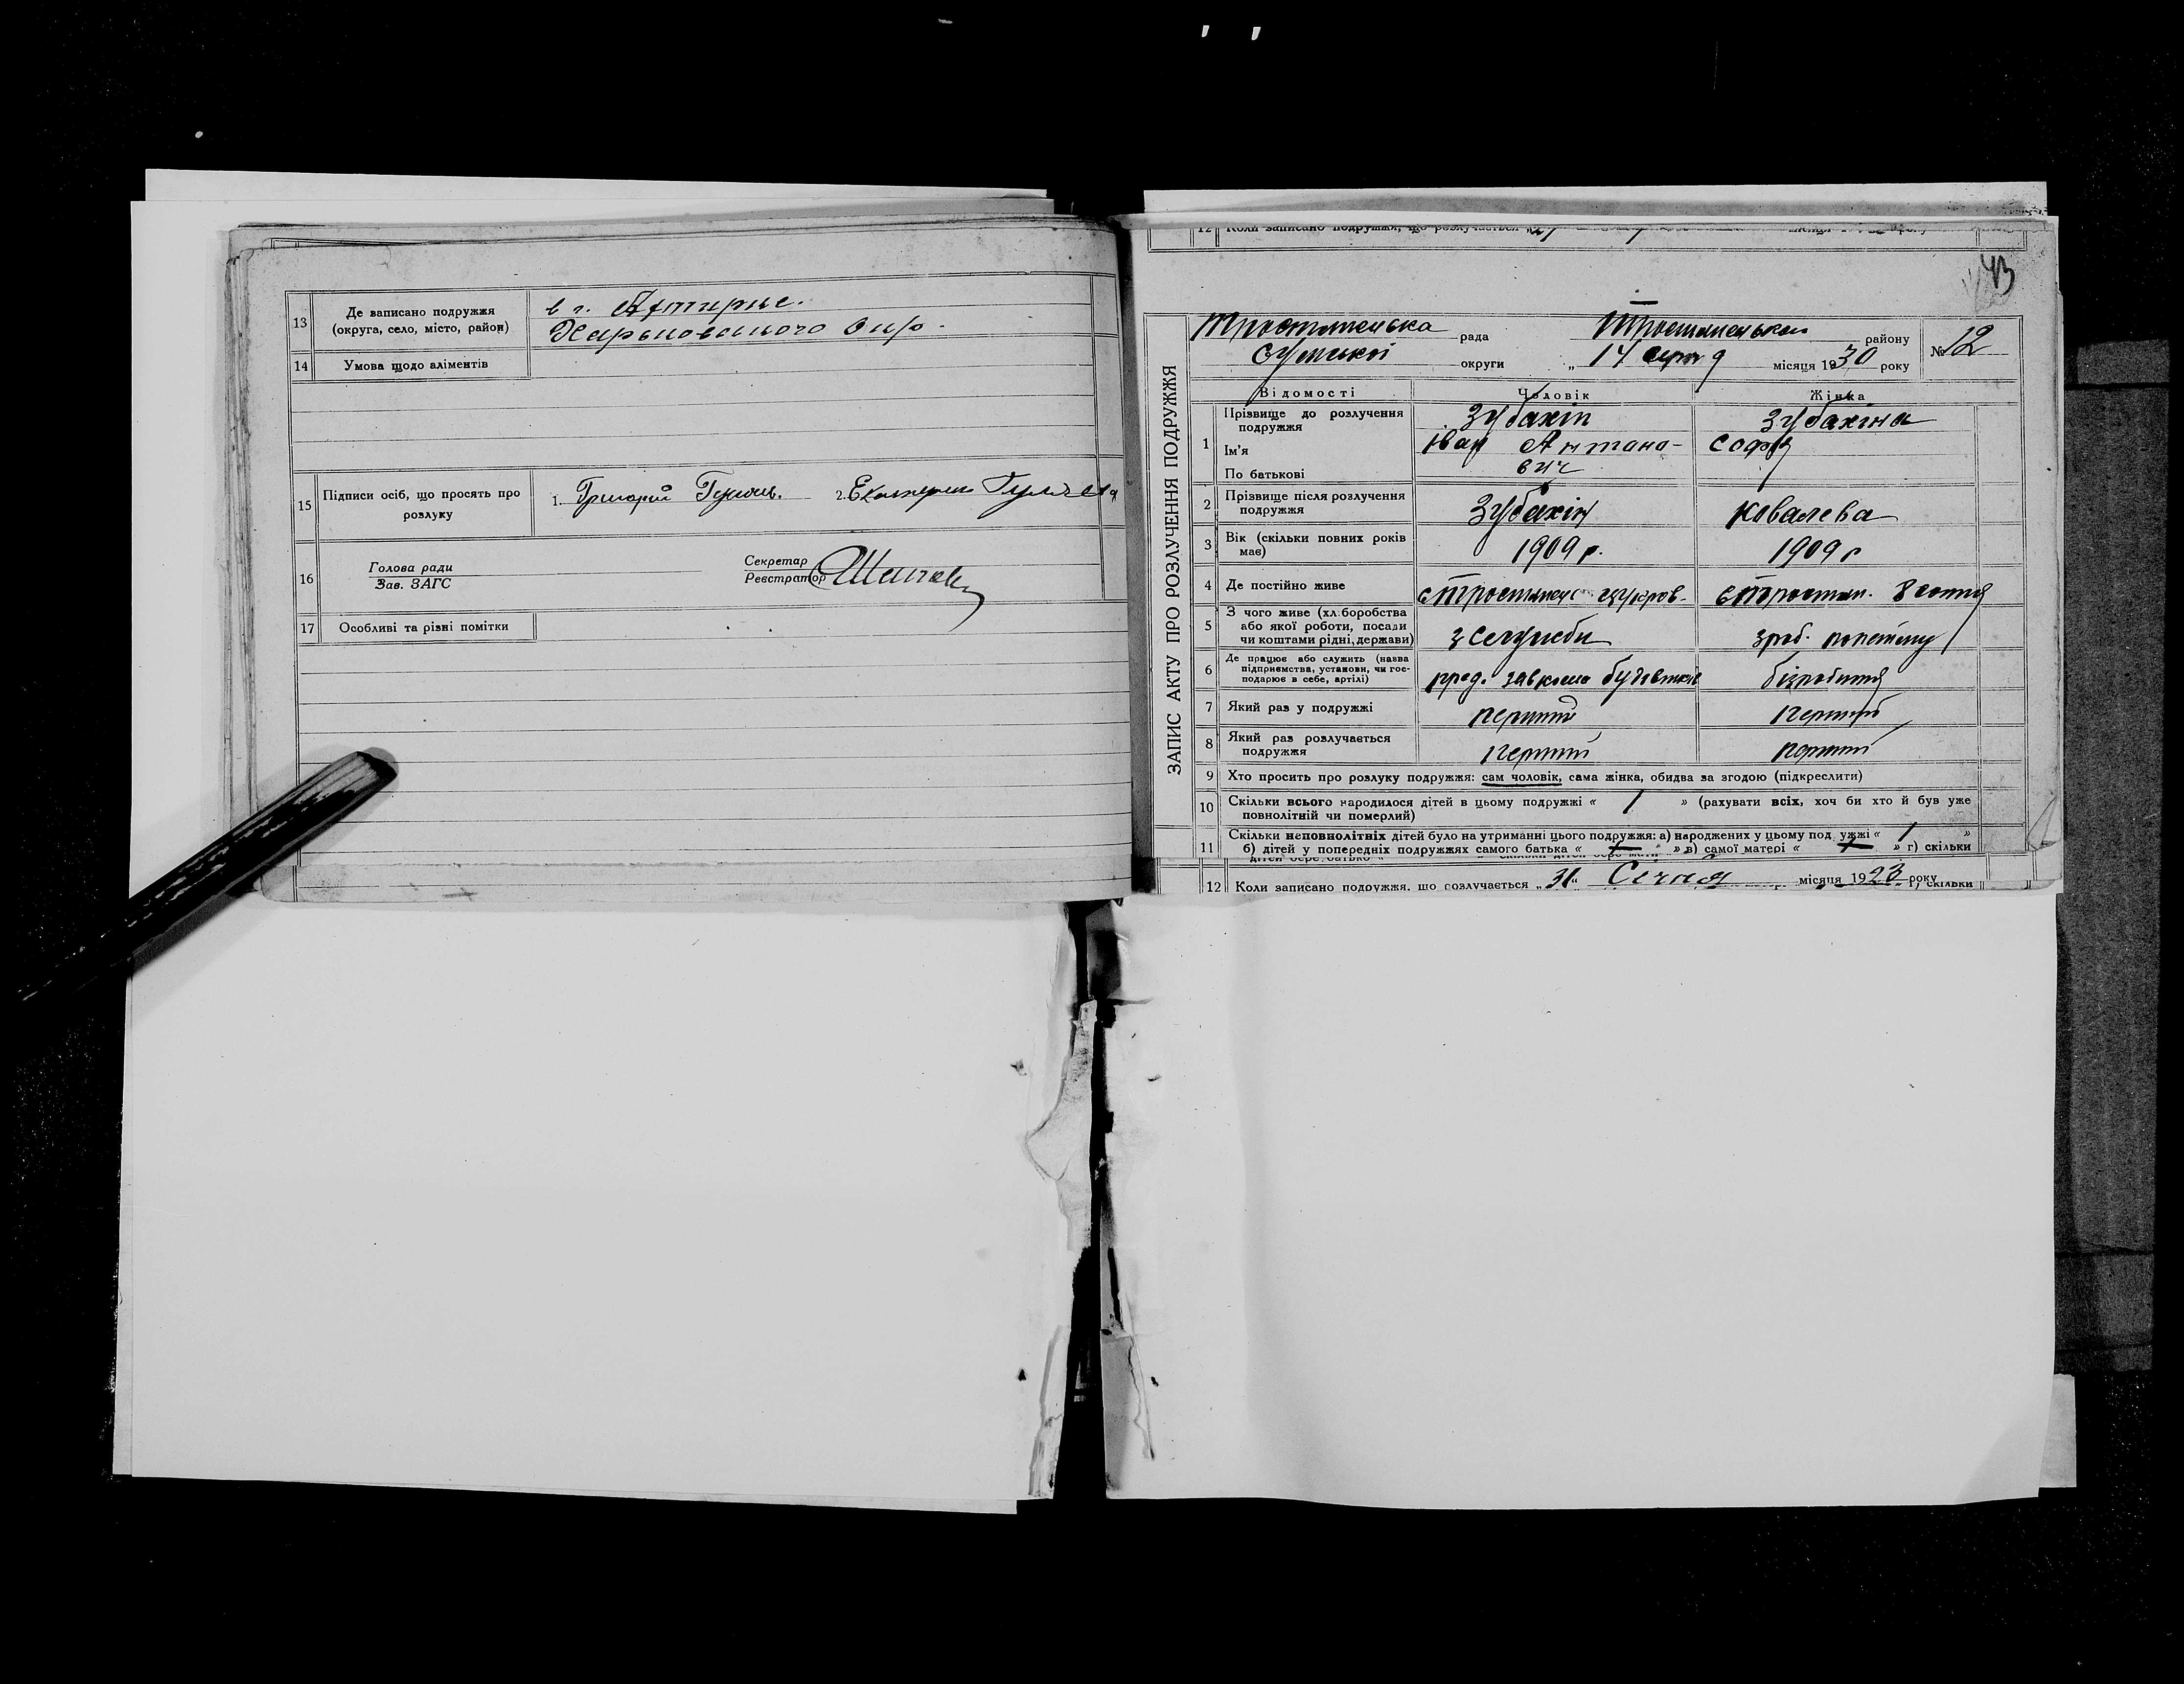 13 Де записано подружжя
(округа, село, місто, район)
в г. Ахтирце.
Харьковського Окр.
14 Умова щодо аліментів
15 Підписи осіб, що просять про
розлуку
1. Григорий 2. Екатерина
16 Голова ради
Зав. ЗАГС
Секретар
Реєстратор
17 Особливі та різні помітки
12 Коли записано подружжя, що розлучається
43
ЗАПИС АКТУ ПРО РОЗЛУЧЕННЯ ПОДРУЖЖЯ
Тростянецька рада Тростянецького району
Сумської округи „ 14 серпня місяця 1930 року
№ 12
Відомості Чоловік Жінка
1 Прізвище до розлучення
подружжя
Зубахін Зубахіна
Ім'я Іван Антано- Софія
По батькові вич
2 Прізвище після розлучення
подружжя
Зубахін Ковалева
3 Вік (скільки повних років
має)
1909 р. 1909 р
4 Де постійно живе
с Тростянець цукров. с Тростян. 8 сотня
5 З чого живе (хл.боробства
або якої роботи, посади
чи коштами рідні, держави)
з служби
6 Де працює або служить (назва
підприємства, установи, чи гос-
подарює в себе, артілі)
пред. завкома будівників безробітня
7 Який раз у подружжі перший перший
8 Який раз розлучається
подружжя
перший перший
9 Хто просить про розлуку подружжя: сам чоловік, сама жінка, обидва за згодою (підкреслити)
10 Скільки всього народилося дітей в цьому подружжі « 1 » (рахувати всіх, хоч би хто й був уже
повнолітній чи померлий)
11 Скільки неповнолітніх дітей було на утриманні цього подружжя: а) народжених у цьому под ужжі « 1 »
б) дітей у попередніх подружжях самого батька « » в) самої матері « » г) скільки
12 Коли записано подружжя, що розлучається „ 31 " Січня місяця 1923 року